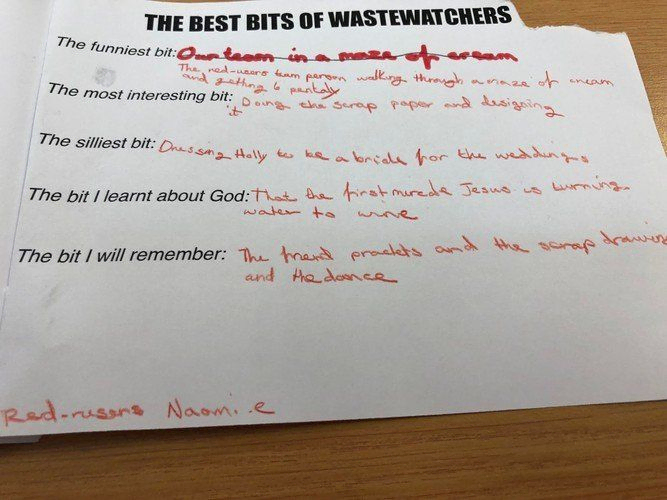 THE BEST BITS OF WASTEWATCHERS
The funniest bit: Our team in a maze of cream
The red-users team person walking through a maze of cream
and getting 6 penltay
The most interesting bit: Doing the scrap paper and designing
it
The silliest bit: Dressing Holly to be a bride for the weddings
The bit I learnt about God: That the first Jesus is turning
water to wine
The bit I will remember: The frend and the scrap drawing
and the dance
Red-rusers Naomi. e